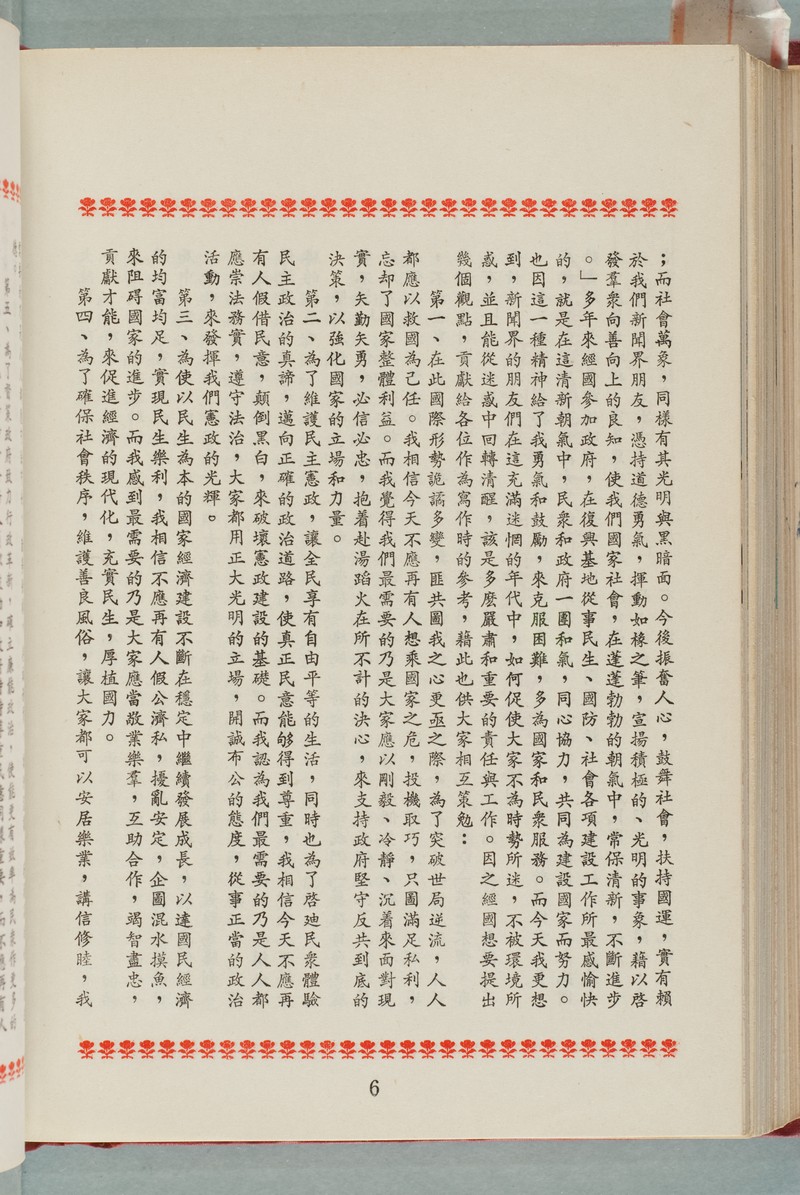 ；而社會萬象，同樣有其光明與黑暗面。今後振奮人心，鼓舞社會，扶持國運，實有賴
於我們新聞界朋友，憑持道德勇氣，揮動如椽之筆，宣揚積極的、光明的事象，藉以啓
發羣衆向善向上的良知，使我們國家社會，在蓬蓬勃勃的朝氣中，常保清新，不斷進步
。」多年來經國參加政府，在復興基地從事民生、國防、社會各項建設工作所最感愉快
的，就是在這清新朝氣中，民衆和政府一團和氣，同心協力，共同為建設國家而努力。
也因這一種精神給了我勇氣和鼓勵，來克服困難，多為國家和民衆服務。而今天我更想
到，新聞界的朋友們在這充滿迷惘的年代中，如何促使大家不為時勢所迷，不被環境所
惑，並且能從迷惑中回轉清醒，該是多麽嚴肅和重要的責任與工作。因之經國想要提出
幾個觀點，貢獻給各位作為寫作時的參考，藉此也供大家相互策勉：
第一、在此國際形勢詭譎多變，匪共圖我之心更亟之際，為了突破世局逆流，人人
都應以救國為己任。我相信今天不應再有人想乘國家之危，投機取巧，只圖滿足私利，
忘却了國家整體利益。而我覺得我們最需要的乃是大家應以剛毅、冷靜、沉着來面對現
實，矢勤矢勇，必信必忠，抱着赴湯蹈火在所不計的決心，來支持政府堅守反共到底的
決策，以強化國家的立場和力量。
第二、為了維護民主憲政，讓全民享有自由平等的生活，同時也為了啓廸民衆體驗
民主政治的真諦，邁向正確的政治道路，使真正民意能够得到尊重，我相信今天不應再
有人假借民意，顛倒黑白，來破壞憲政建設的基礎。而我認為我們最需要的乃是人人都
應崇法務實，遵守法治，大家都用正大光明的立場，開誠布公的態度，從事正當的政治
活動，來發揮我們憲政的光輝。
第三、為使以民生為本的國家經濟建設不斷在穩定中繼續發展成長，以達國民經濟
的均富均足，實現民生樂利，我相信不應再有人假公濟私，擾亂安定，企圖混水摸魚，
來阻碍國家的進步。而我感到最需要的乃是大家應當敬業樂羣，互助合作，竭智盡忠，
貢獻才能，來促進經濟的現代化，充實民生，厚植國力。
第四、為了確保社會秩序，維護善良風俗，讓大家都可以安居樂業，講信修睦，我
6